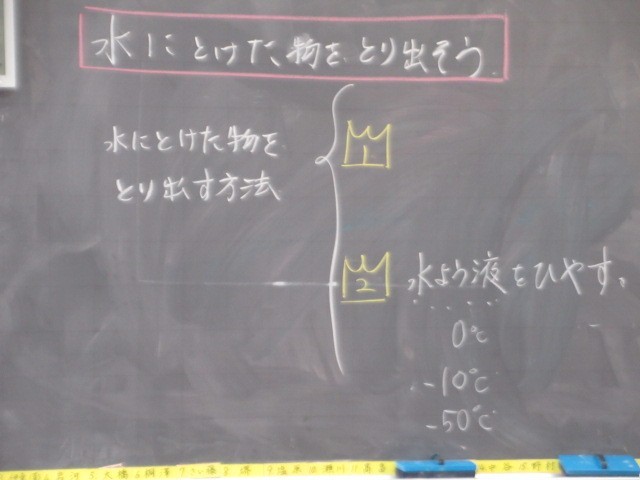 水にとけた物をとり出そう
水にとけた物を
とり出す方法
1
2 水よう液をひやす。
0℃
-10℃
-50℃